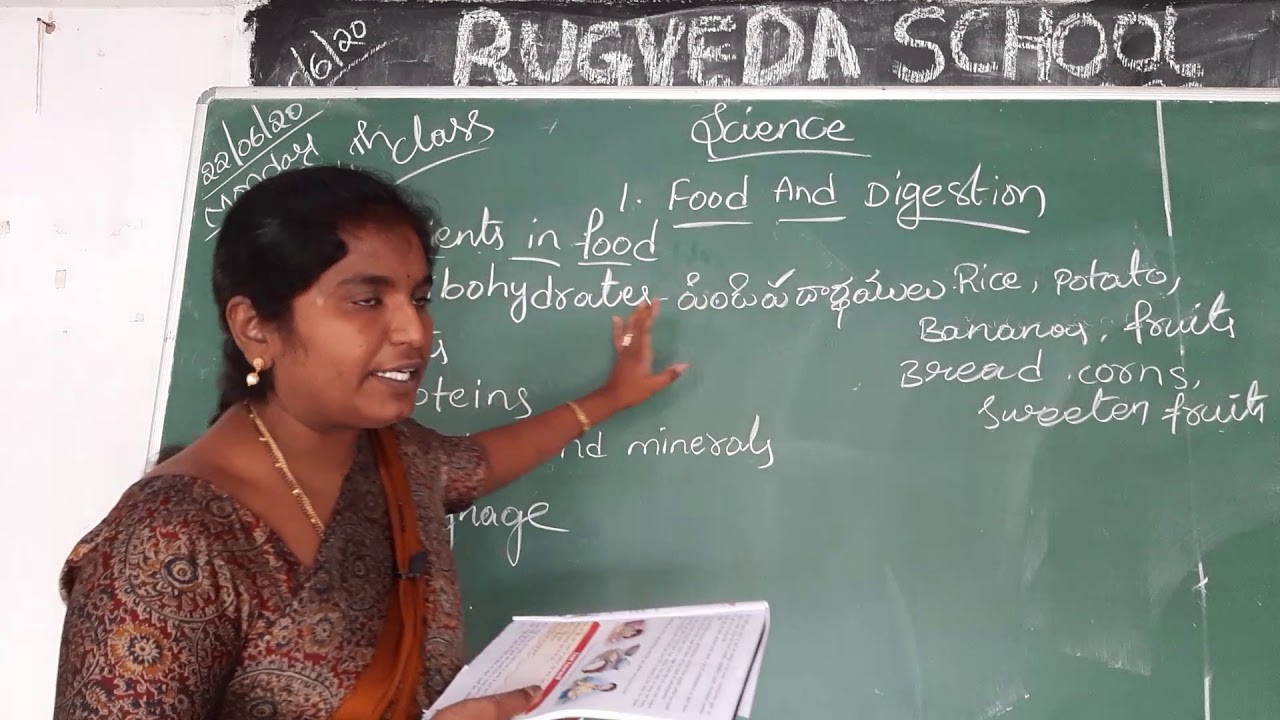 RUGVEDA SCHOOL
/6/20
22/06/20
Monday
class
Science
1. Food And Digestion
ients in food
bohydrates - పిండిపదార్థములు Rice, Potato,
Bananas, fruits
Bread, corns,
Sweeten fruits
oteins
nd minerals
ghage